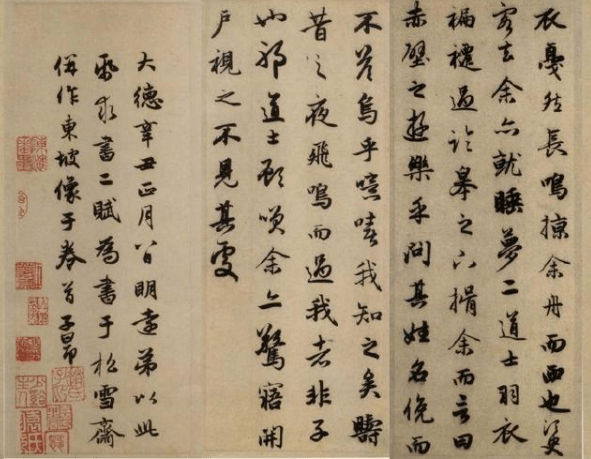 衣戛然長鳴掠余舟而西也須臾
客去余亦就睡夢二道士羽衣
褊褼過臨皋之下揖余而言曰
赤壁之遊樂乎問其姓名俛而
不答烏乎噫嘻我知之矣疇
昔之夜飛鳴而過我者非子
也邪道士顧笑余亦驚寤開
戶視之不見其處
大德辛丑正月八日明遠弟以此
紙求書二賦為書于松雪齋
併作東坡像于卷首子昂